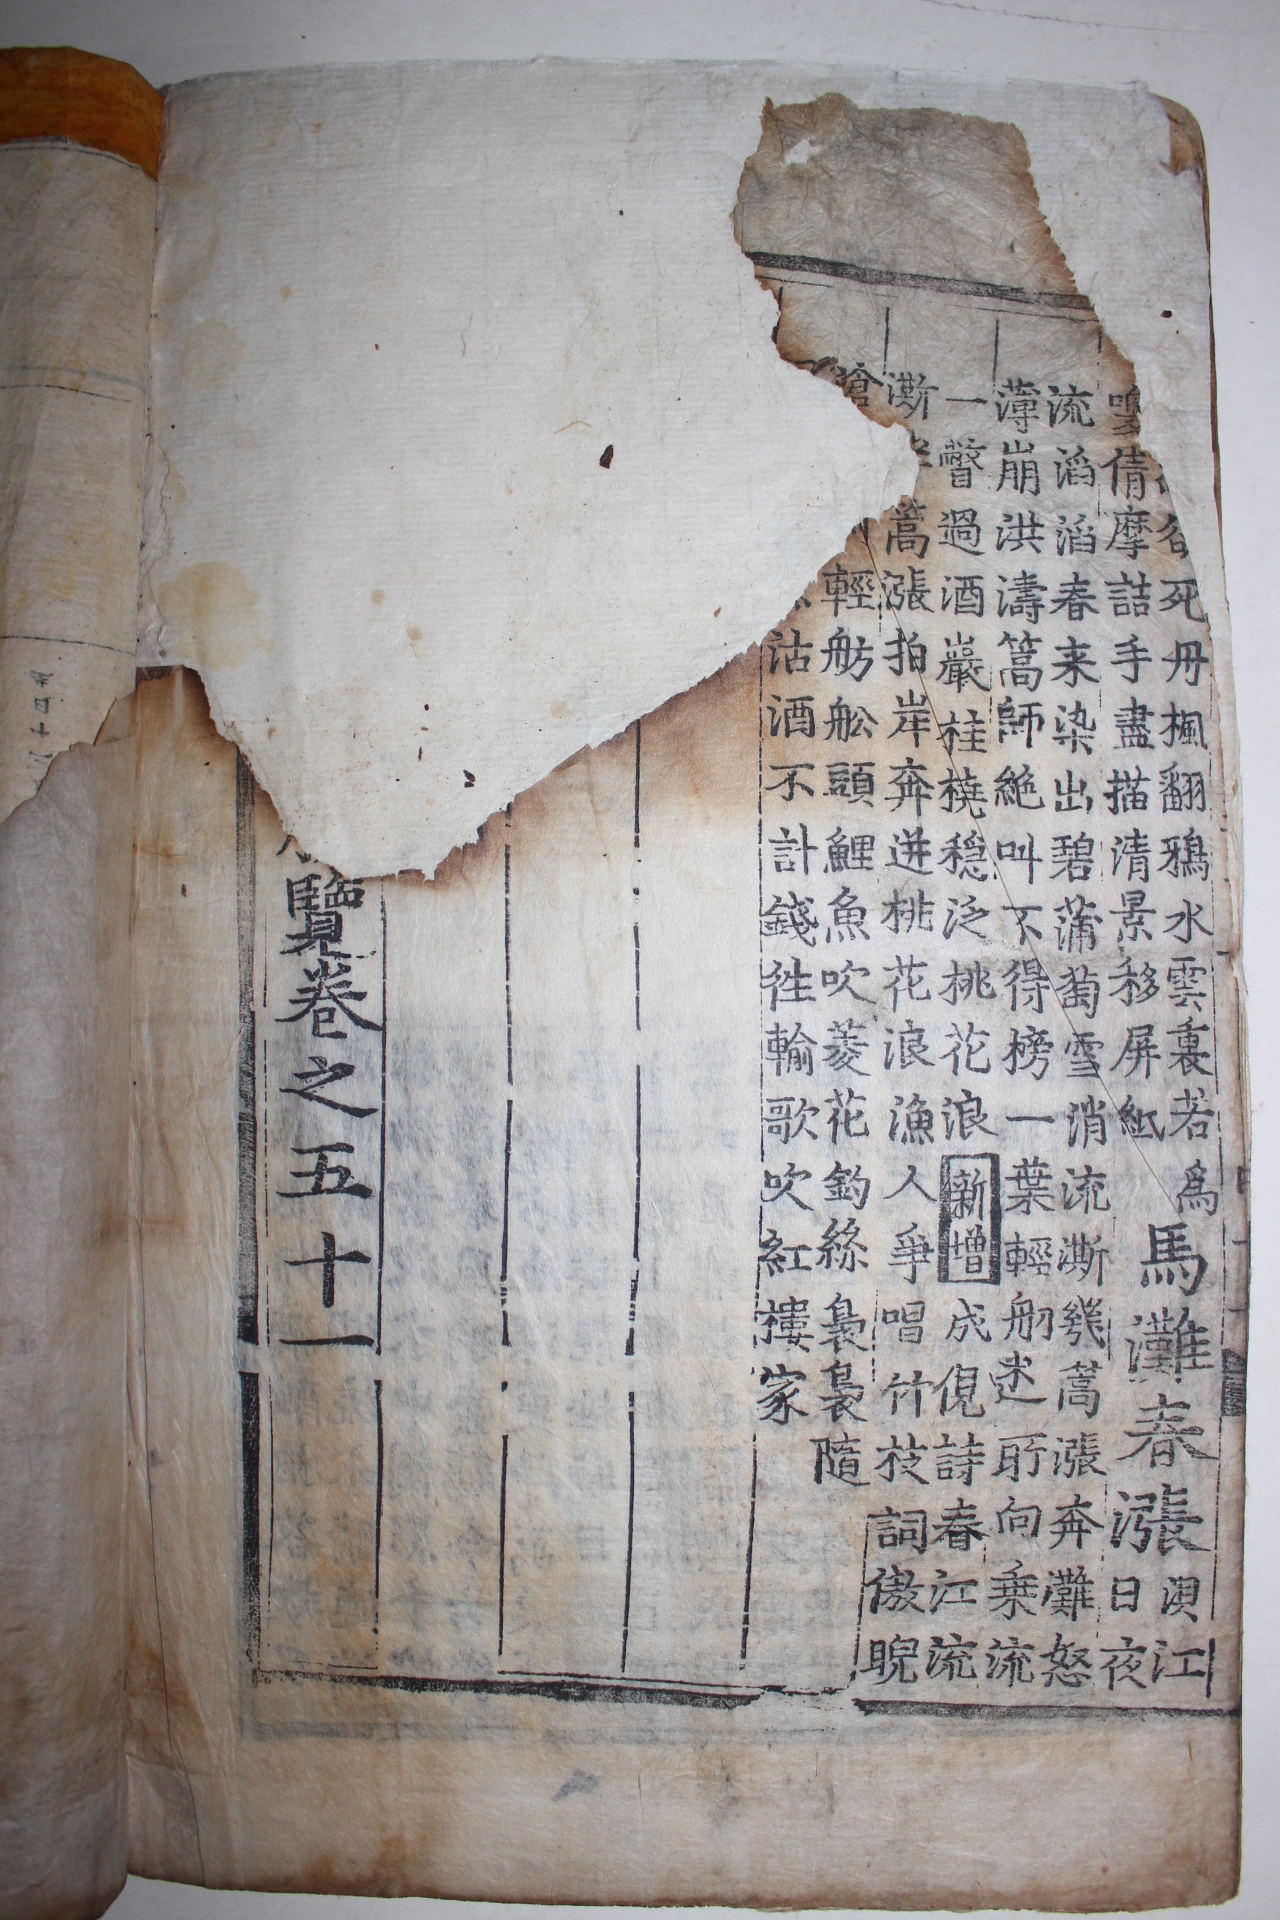 死丹楓翻鴉水雲裏若爲
倩摩詰手盡描清景移屏紙
馬灘春漲
浿江
日夜
流滔滔春来染出碧蒲萄雪消流澌幾蒿漲奔灘怒
薄崩洪濤篙師絶叫不得榜一葉輕舠迷所向乗流
一瞥過酒巖桂橈穏泛桃花浪新增成俔詩春江流
澌蒿漲拍岸奔迸桃花浪漁人爭唱竹枝詞傲睨
滄輕舫舩頭鯉魚吹菱花釣絲裊裊隨
沽酒不計錢徃輸歌吹紅樓家
覽卷之五十一